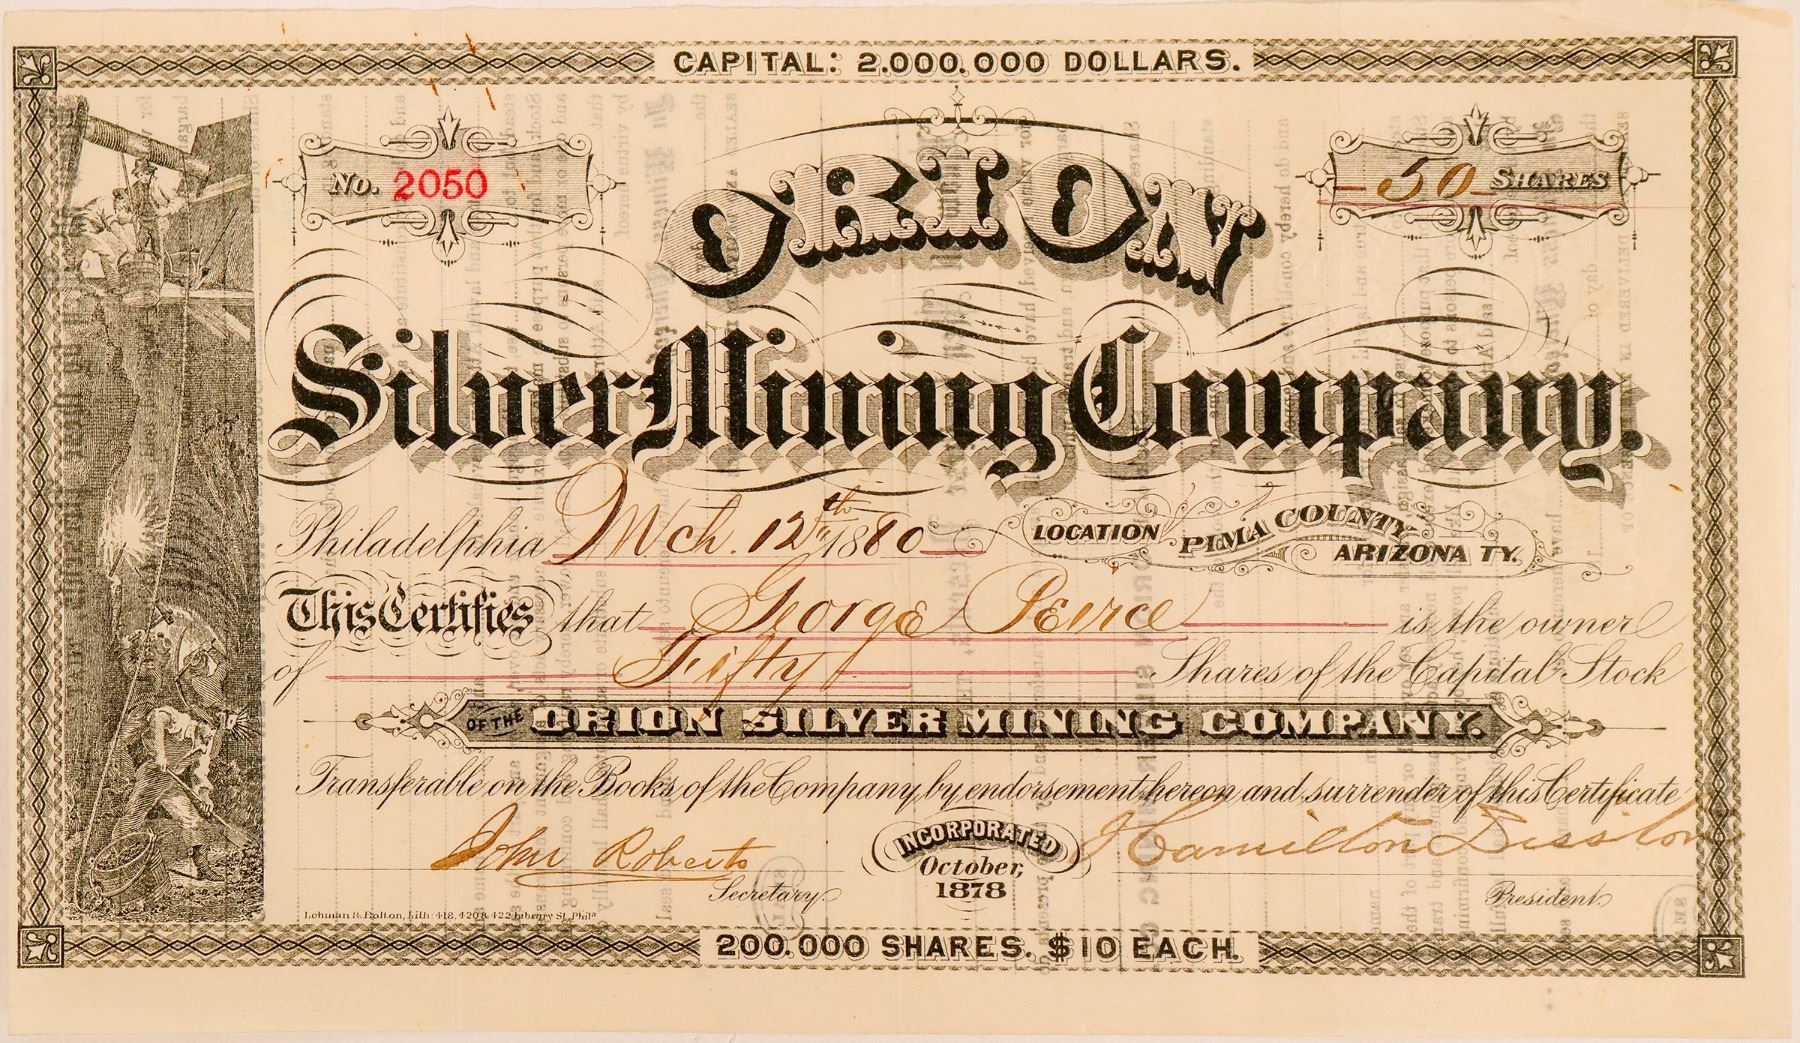 CAPITAL: 2.000.000 DOLLARS.
No. 2050
50 SHARES
ORION
Silver Mining Company.
Philadelphia Mch. 12th 1880
LOCATION PIMA COUNTY ARIZONA TY.
This Certifies that George Peirce is the owner
of Fifty Shares of the Capital Stock
OF THE ORION SILVER MINING COMPANY.
Transferable on the Books of the Company by endorsement hereon and surrender of this Certificate
John Roberts
Secretary
INCORPORATED
October,
1878
Hamilton Disston
President
Lehman & Bolton, Lith: 418, 420 & 422 Library St. Phila
200.000 SHARES. $10 EACH.